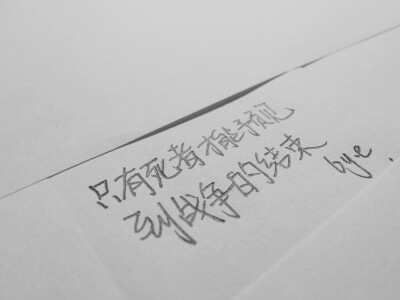 只有死者才能予见
到战争的结束
bye.